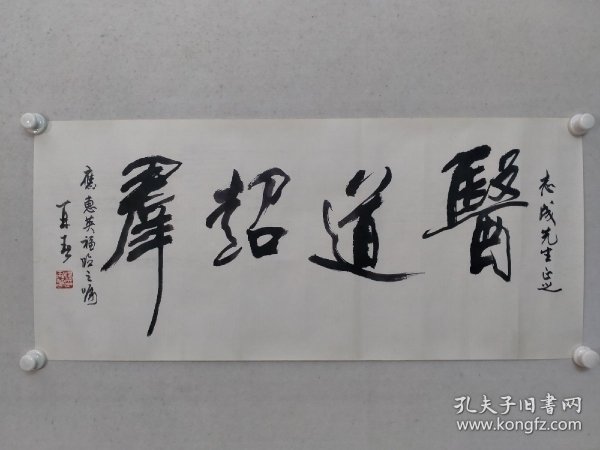 志成先生正之
醫道超羣
應惠英福臨之嘱
孔夫子旧书网
www.kongfz.com